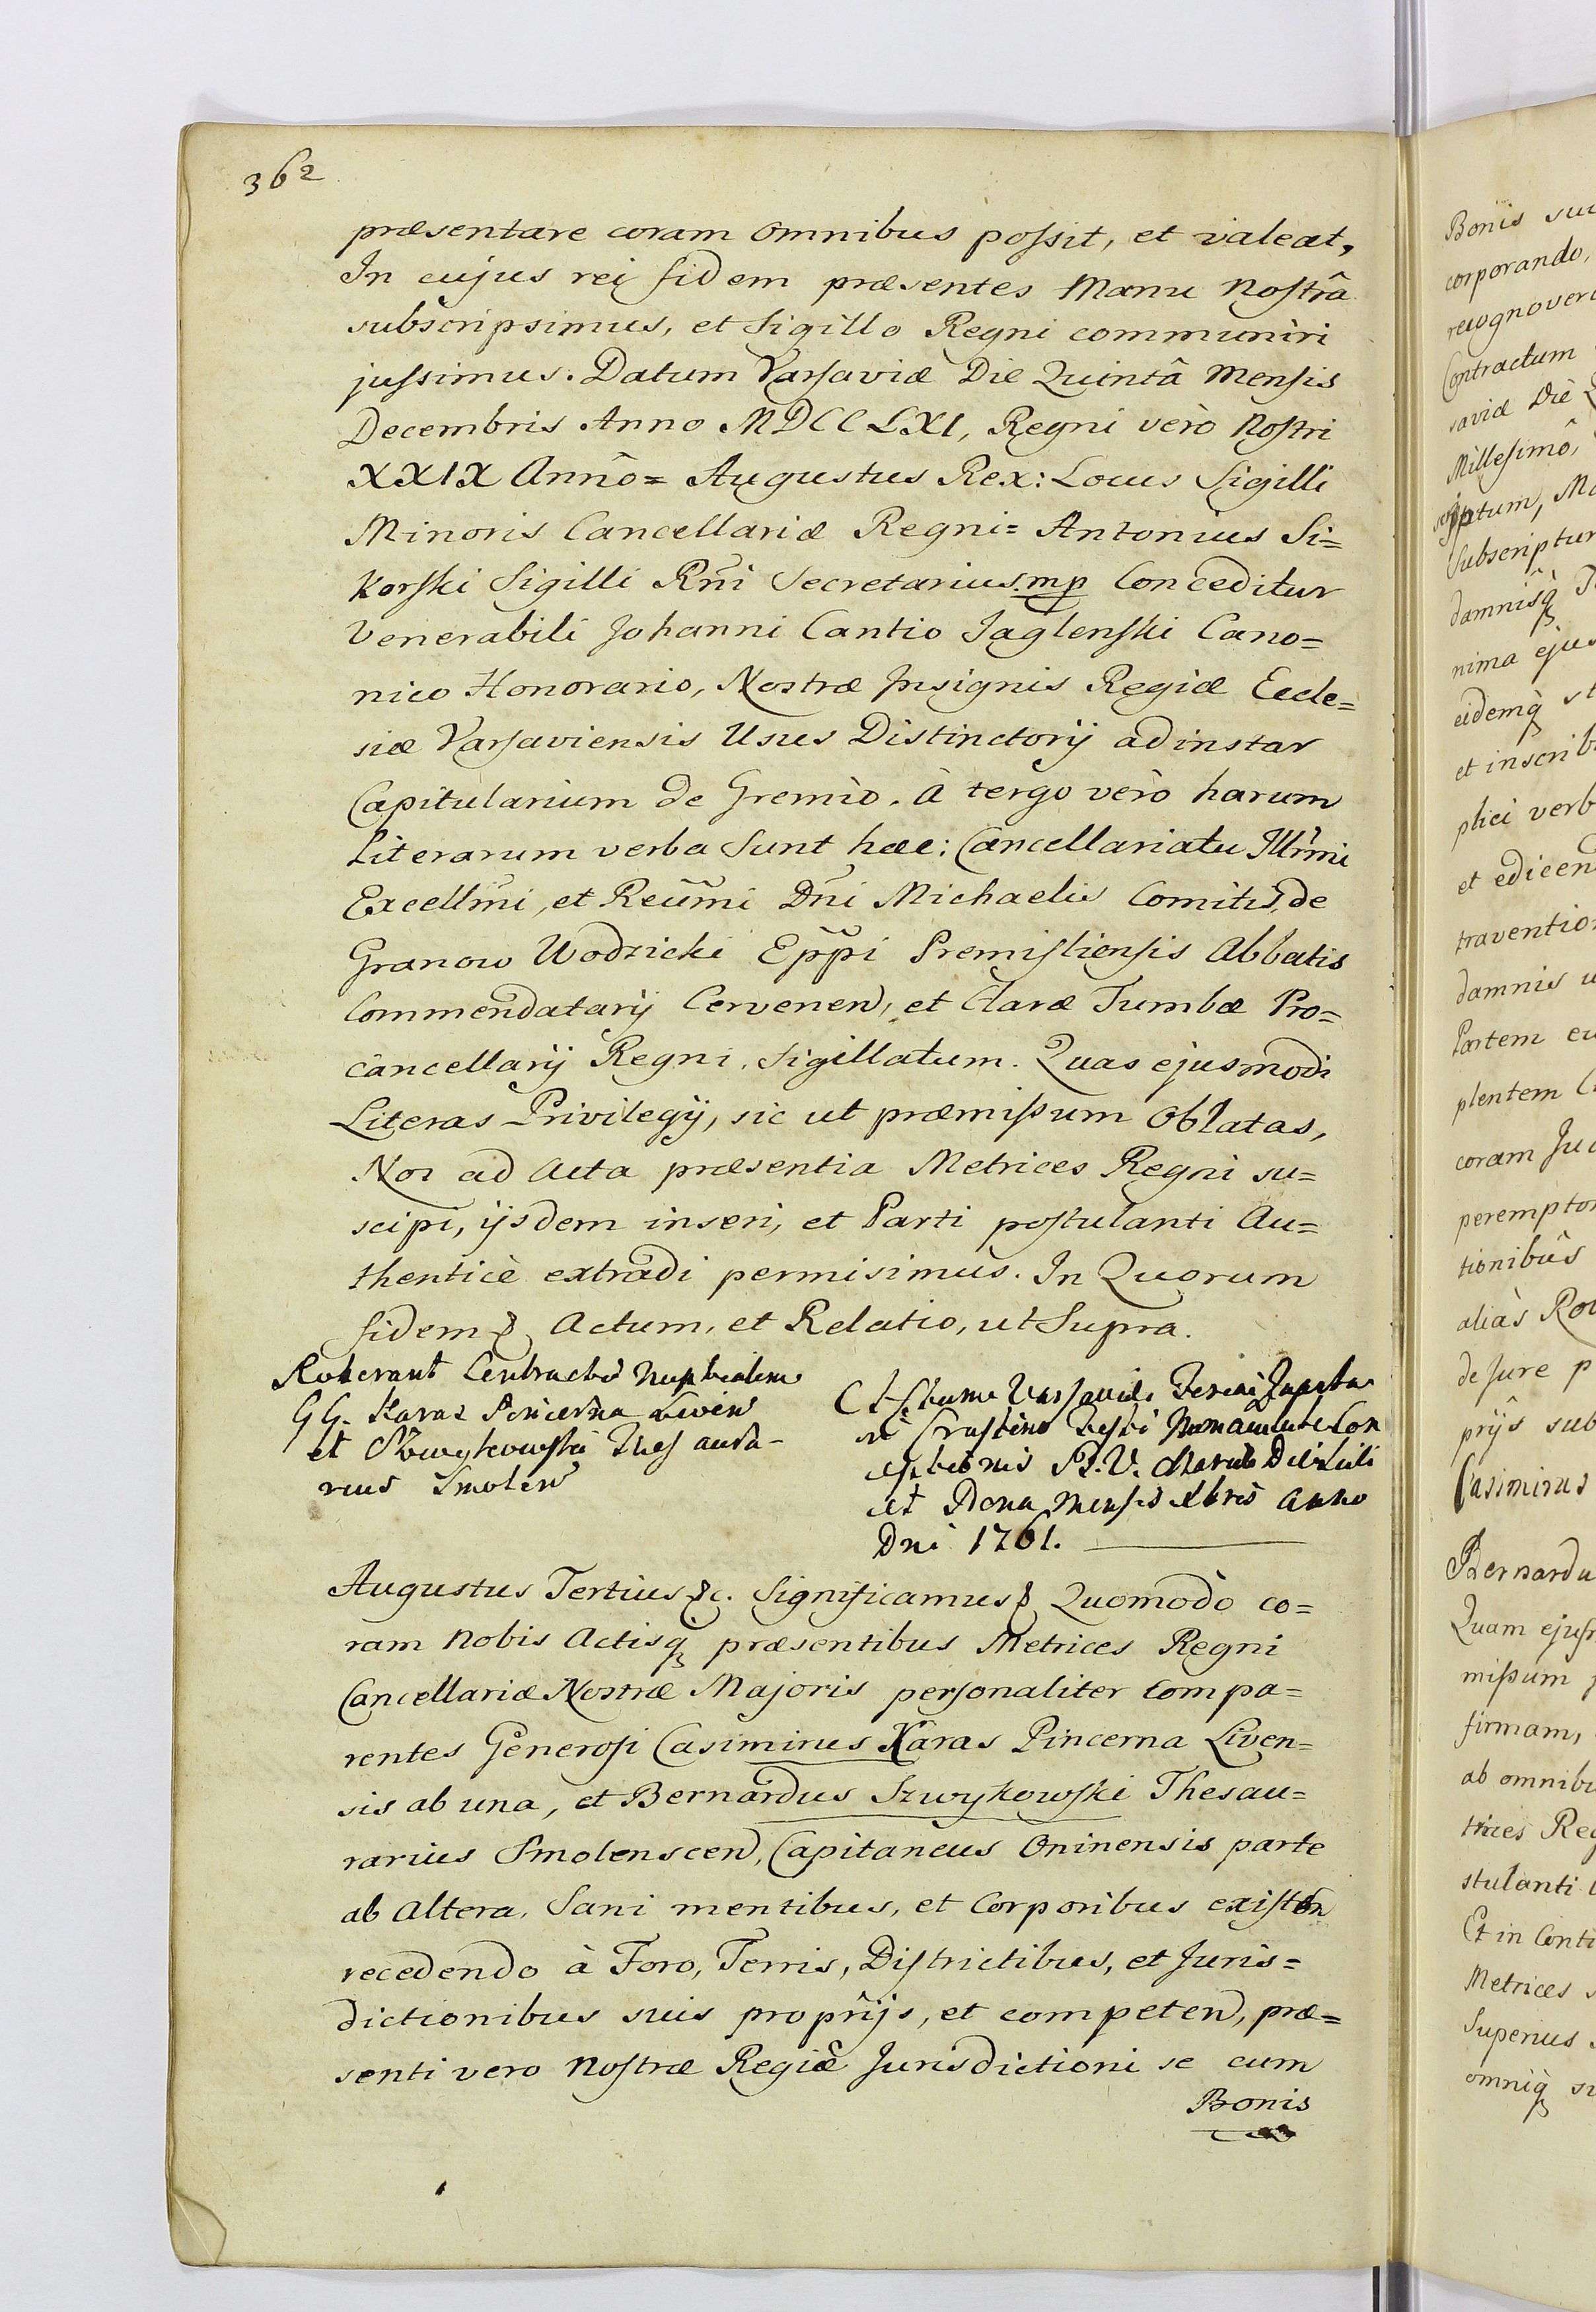 362
præsentare coram omnibus possit, et valeat,
In cujus rei fidem præsentes Manu Nostrâ
subscripsimus, et Sigillo Regni communiri
jussimus. Datum Varsaviæ Die Quintâ Mensis
Decembris Anno MDCCLXI, Regni verò Nostri
XXIX Annô = Augustus Rex: Locus Sigilli
Minoris Cancellariæ Regni = Antonius Si=
korski Sigilli Rñi Secretarius mp Conceditur
Venerabili Johanni Cantio Jaglenski Cano=
nico Honorario, Nostræ Insignis Regiæ Eccle=
siæ Varsaviensis Usus Distinctorij ad instar
Capitularium de Gremiò. à tergo verò harum
Literarum verba Sunt hæc: Cancellariatu Illrmi
Excellmi, et Reũmi Dñi Michaelis Comitis, de
Granow Wodzicki Eppi Premisliensis Abbatis
Commendatarij Cervenen, et Claræ Tumbæ Pro=
cancellarij Regni, Sigillatum. Quas ejusmodi
Literas Privilegij, sic ut præmissum Oblatas,
Nos ad Acta præsentia Metrices Regni su=
scipi, ijsdem inseri, et Parti postulanti Au=
thenticè extradi permisimus. In Quorum
fidem & Actum, et Relatio, ut Supra.
Roborant Contractus Nuptialem
GG. Karas Pincerna Liven
et Szwykowski Thesaura-
rius Smolen
Actum Varsaviæ Feria Quarta
in Crastino Festi Immaculatæ Con
ceptionis B. V. Mariæ Die
et Nona Mensis Xbris Anno
Dni 1761.
Augustus Tertius &c. Significamus & Quomodò co=
ram Nobis Actisq præsentibus Metrices Regni
Cancellariæ Nostræ Majoris personaliter Compa=
rentes Generosi Casimirus Karas Pincerna Liven=
sis ab una, et Bernardus Szwykowski Thesau=
rarius Smolenscen, Capitaneus Oninensis parte
ab Altera, Sani mentibus, et Corporibus existen
recedendo à Foro, Terris, Districtibus, et Juris=
dictionibus suis proprijs, et competen, præ=
senti vero Nostræ Regiæ Jurisdictioni se cum
Bonis
Bonis
corporando,
Contractum
saviæ Diè
Millesimô,
Subscriptum
damnisq
nima ejus
eidemq
et inscrib
plici verb
et edicen
damnis
Partem
plentem
coram
tionibus
aliàs
de Jure
prijs sub
Casimirus
Bernardu
Quam ejus
missum
firmam,
ab omnibu
trices Reg
stulanti
Et in Conti
Metrices
Superius
omniq